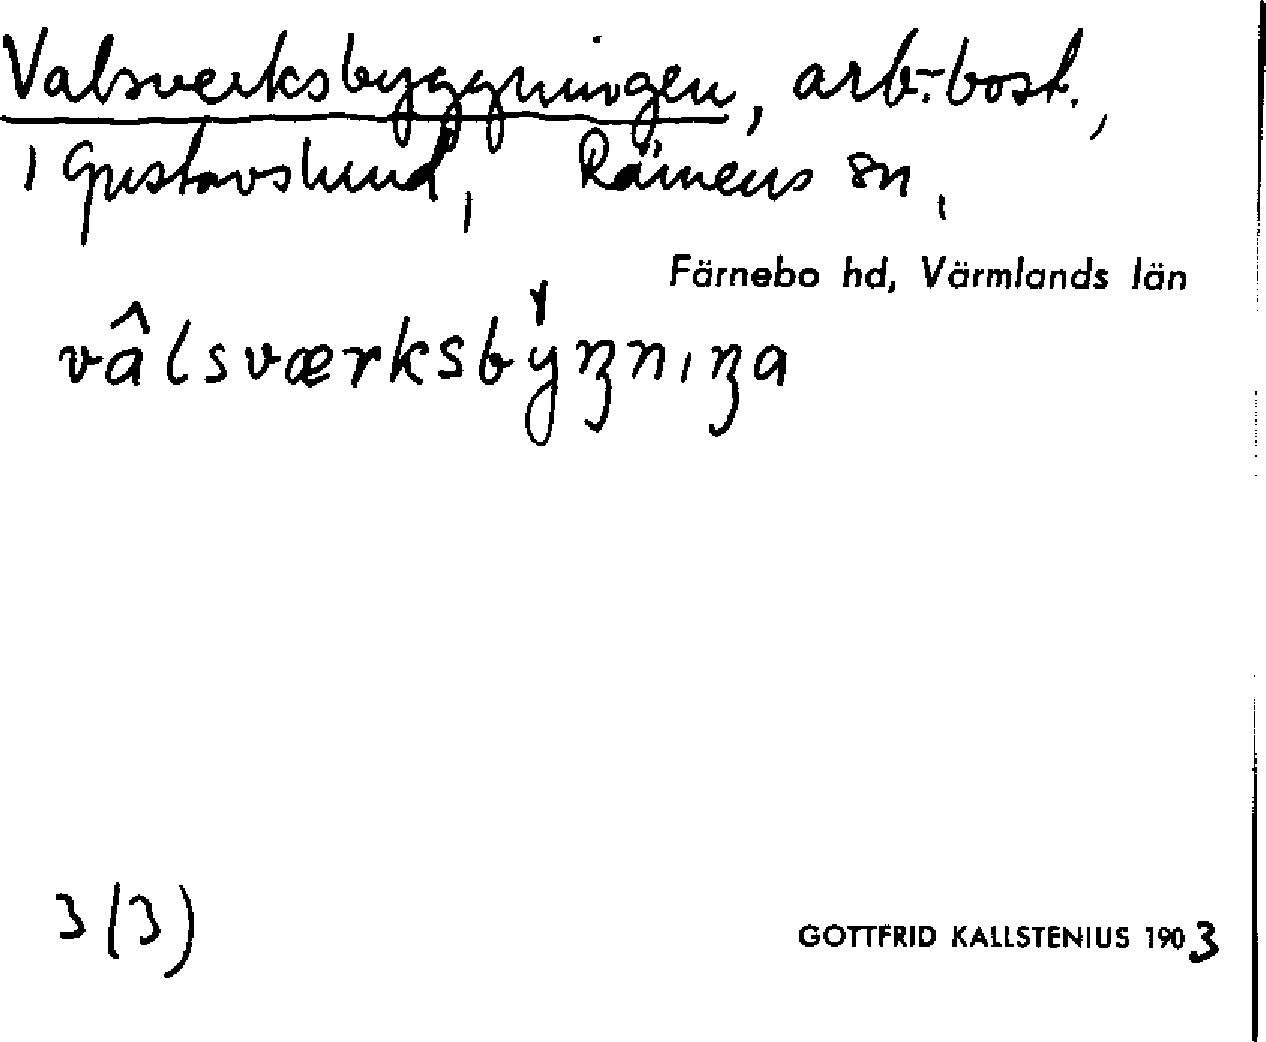 Valsverksbyggningen, arb.-bost.,
i Gustavslund, Rämens sn,
Färnebo hd, Värmlands län
vâlsværksby̍ŋnıŋa
3 (3)
GOTTFRID KALLSTENIUS 1903